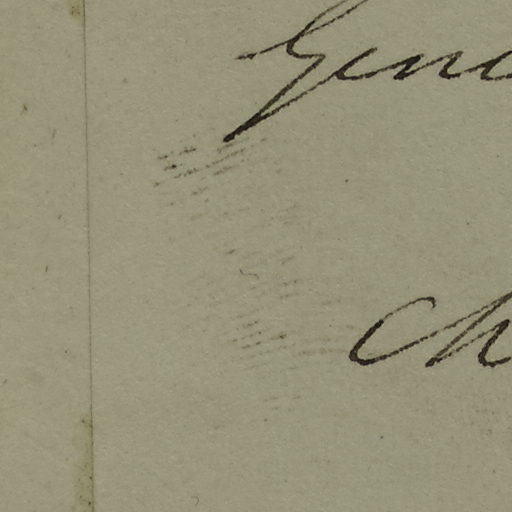 Gene
Ch